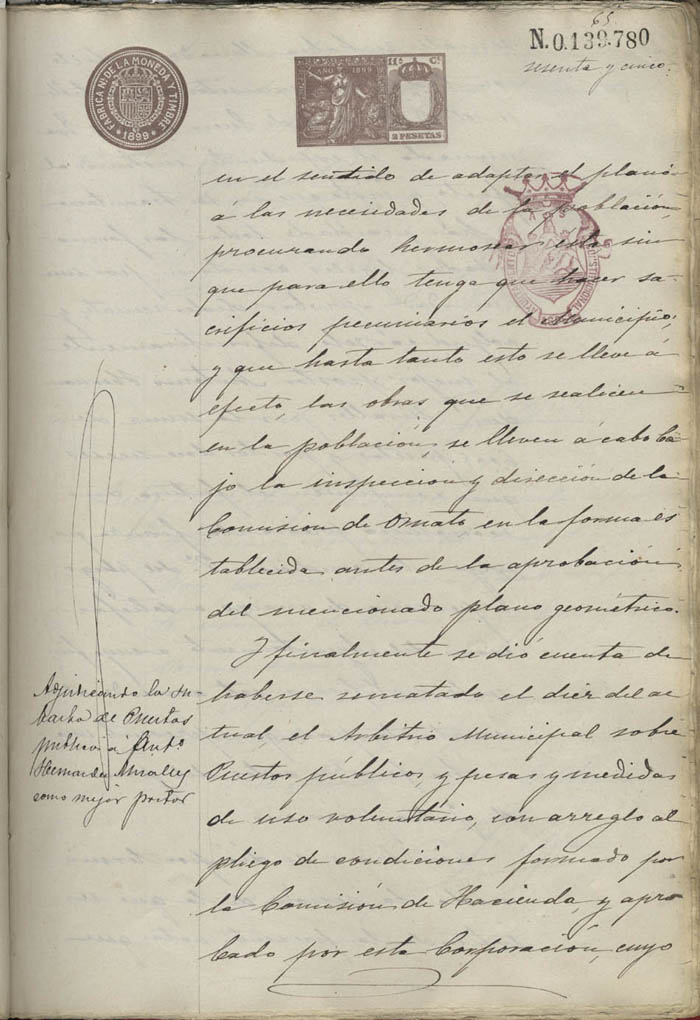 65
N.0.139.780
sesenta y cinco
FABRICA Nl. DE LA MONEDA Y TIMBRE
1899
AÑO 1899
11ª Cª
2 PESETAS
en el sentido de adaptar el plano
á las necesidades de la población,
procurando hermosear ésta sin
que para ello tenga que hacer sa-
crificios pecuniarios el Municipio;
y que hasta tanto esto se lleve á
efecto, las obras que se realicen
en la población, se lleven á cabo ba
jo la inspeccion y dirección de la
Comision de Ornato en la forma es
tablecida antes de la aprobación
del mencionado plano geométrico.
Y finalmente se dió cuenta de
haberse rematado el diez del ac
tual, el Arbitrio Municipal sobre
Puestos públicos, y pesas y medidas
de uso voluntario, con arreglo al
pliego de condiciones formado por
la Comisión de Hacienda, y apro
bado por esta Corporación, cuyo
Adjudicando la su-
basta de Puestos
publicos á Antº
Hernandez Miralles
como mejor postor